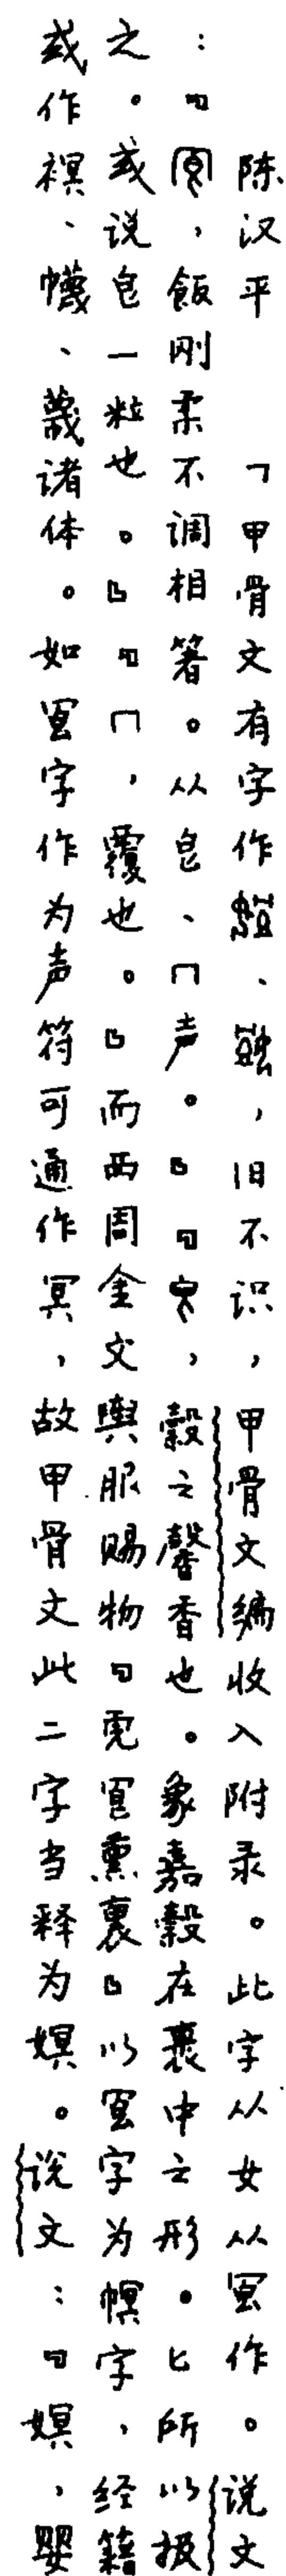 陈汉平 「甲骨文有字作、，旧不识，甲骨文编收入附录。此字从女从冟作。说文
：『冟，飯刚柔不调相箸。从皀、冂声。』『皀，穀之馨香也。象嘉穀在裹中之形。匕所以扱
之。或说皀一粒也。』『冂，覆也。』而西周金文舆服赐物『虎冟熏裏』以冟字为幎字，经籍
或作榠、幭、蔑诸体。如冟字作为声符可通作冥，故甲骨文此二字当释为嫇。说文：『嫇，嬰